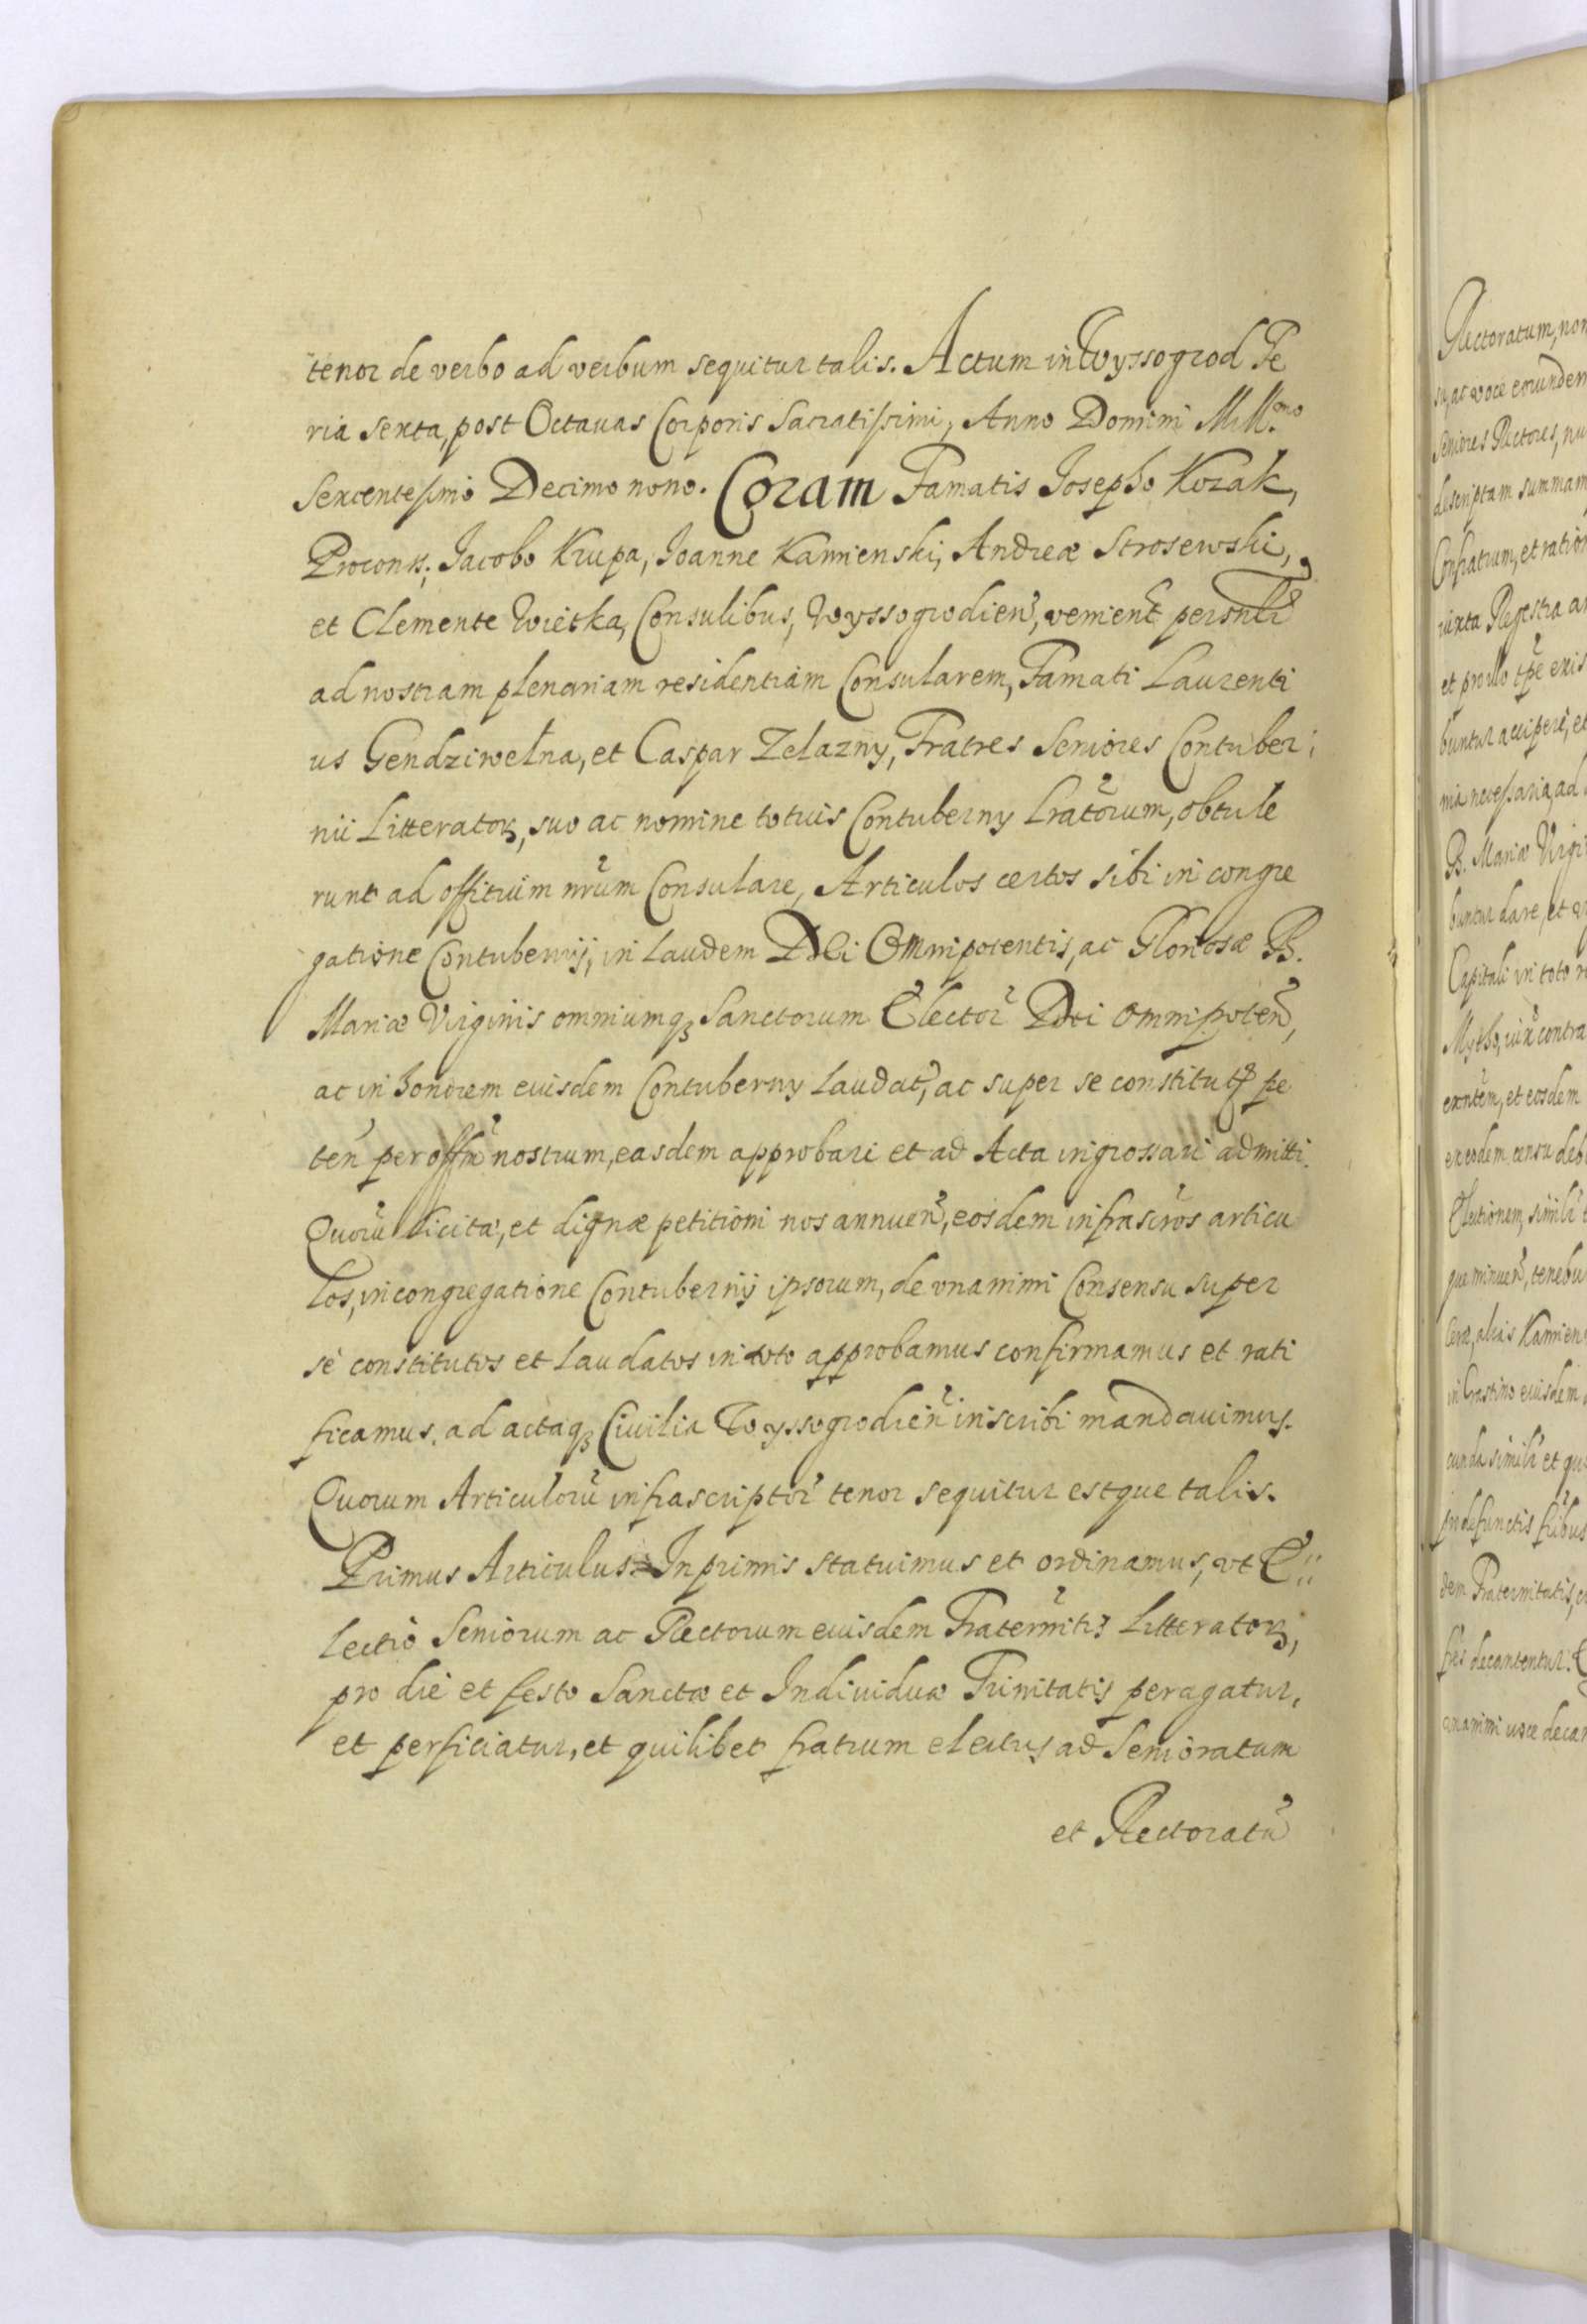 tenor de verbo ad verbum sequitur talis. Actum in Wyssogrod Fe
ria sexta, post Octauas Corporis Sacratissimi, Anno Domini Mill̃mo
Sexcentesimo Decimo nono. Coram Famatis Josepho Kozak,
Procons; Jacobo Krupa, Joanne Kamienski, Andreæ Strosewski,
et Clemente Wietka, Consulibus, Wyssogrodień, venient persñlr
ad nostram plenariam residentiam Consularem, Famati Laurenti
us Gendziwełna, et Caspar Zelazny, Fratres Seniores Contuber:
nii Litteratoꝝ, suo ac nomine totius Contuberny Lrãtorum, obtule
runt ad offitium nr̃um Consulare, Articulos certos sibi in congre
gatione Contubernij, in laudem Dei Omnipotentis, ac Gloriosæ B.
Mariæ Virginis omniumqꝫ Sanctorum Elector̃ Dei omnipoteñ,
ac in honorem eiusdem Contuberny laudat, ac super se constitut pe
teñ per offm̃ nostrum, easdem approbari et ad Acta ingrossari admitti.
Quorũ licitæ, et dignæ petitioni nos annueñ, eosdem infrascr̃os articu
los, in congregatione Contubernij ipsorum, de vnanimi Consensu super
se constitutos et laudatos in toto approbamus confirmamus et rati
ficamus, ad actaqꝫ Ciuilia Wyssogrodieñ inscribi mandauimus.
Quorum Articulorũ infrascriptor̃ tenor sequitur estque talis.
Primus Articulus. Inprimis statuimus et ordinamus, vt E::
lectio Seniorum ac Rectorum eiusdem Fraternit̃s Litteratoꝝ,
pro die et festo Sanctæ et Indiuiduæ Trinitatis peragatur,
et perficiatur, et quilibet fratrum electus ad Senioratum
et Rectoratũ
Rectoratum, non
su, ac voce eorundem
Seniores Rectores, nu
descriptam summam
Confratrum, et ration
iuxta Regestra a
et pro illo tp̃e exis
buntur accipere, et
nia necessaria, ad
B. Mariæ Virgi
buntur dare, et
Capitali in toto
contra
et eosdem
ex eodem censu deb
Electionem, simili
que minueñ, tenebu
Kamien
in Crastino eiusdem
cunda simili et qu
defunctis fr̃ibus
dem Fraternitatis,
decantentur.
vnanimi voce decan